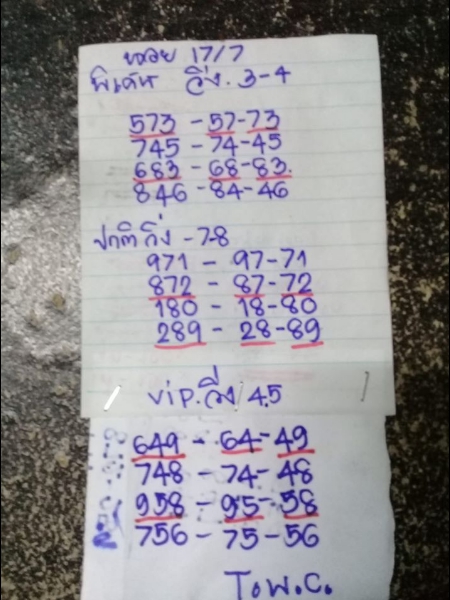 หวย 17/7
พิเศษ วิ่ง. 3-4
573 - 57-73
745 - 74-45
683 - 68-83.
846 - 84-46
ปกติวิ่ง - 7-8
971 - 97-71
872 - 87-72
180 - 18-80
289 - 28-89
vip. วิ่ง 4.5
649 - 64-49
748 - 74-48
958 - 95-58
756 - 75-56
T.W.C.